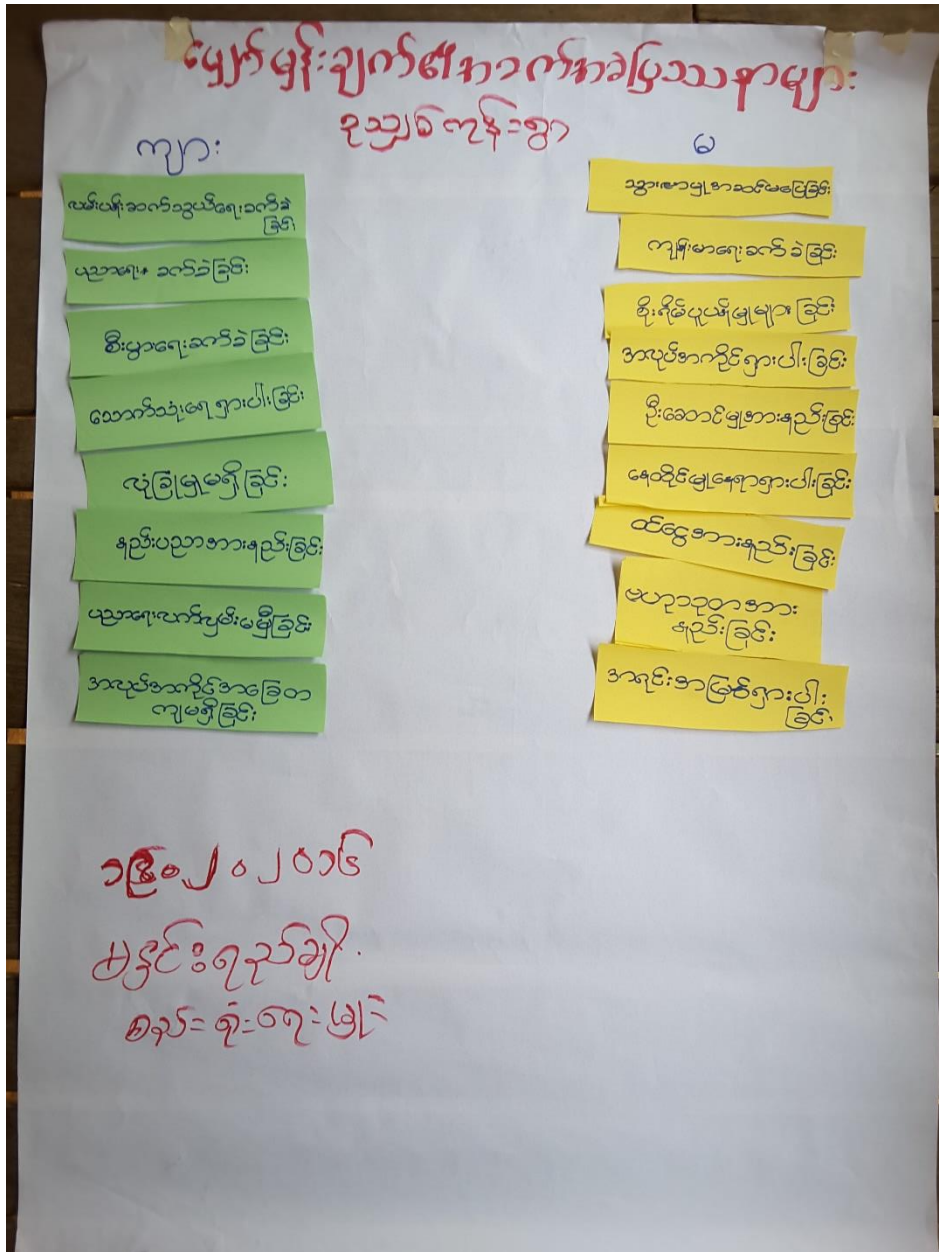 မျှော်မှန်းချက်၏အခက်အခဲပြဿနာများ
ကုန်းရွာ
ကျား
မ
လမ်းပန်းဆက်သွယ်ရေးခက်ခဲ
ခြင်း
ပညာရေး ခက်ခဲခြင်း
စီးပွာရေးခက်ခဲခြင်း
သောက်သုံးရေရှားပါးခြင်း
လုံခြုံမှုမရှိခြင်း
နည်းပညာအားနည်းခြင်း
ပညာရေးလက်လှမ်းမမှီခြင်း
အလုပ်အကိုင်အခြေတ
ကျမရှိခြင်း
သွားလာမှုအဆင်မပြေခြင်း
ကျန်းမာရေးခက်ခဲခြင်း
စိုးရိမ်ပူပန်မှုများခြင်း
အလုပ်အကိုင်ရှားပါးခြင်း
ဦးဆောင်မှုအားနည်းခြင်း
နေထိုင်မှုနေရာရှားပါးခြင်း
ဝင်ငွေအားနည်းခြင်း
ဗဟုသုတအား
နည်းခြင်း
အရင်းအမြစ်ရှားပါး
ခြင်း
မနှင်းရည်ချို
စည်းရုံးရေးမှူး